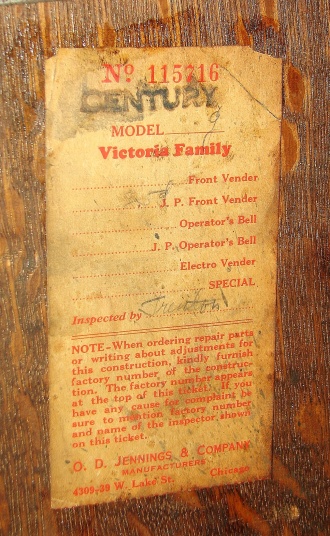 No 115716
CENTURY
MODEL
Victoria Family
Front Vender
J. P. Front Vender
Operator's Bell
J. P. Operator's Bell
Electro Vender
SPECIAL
Inspected by
NOTE-When ordering repair parts
or writing about adjustments for
this construction, kindly furnish
factory number of the construc-
tion. The factory number appears
at the top of this ticket. If you
have any cause for complaint be
sure to mention factory number
and name of the inspector shown
on this ticket.
O. D. JENNINGS & COMPANY
MANUFACTURERS
4309-39 W. Lake St. Chicago